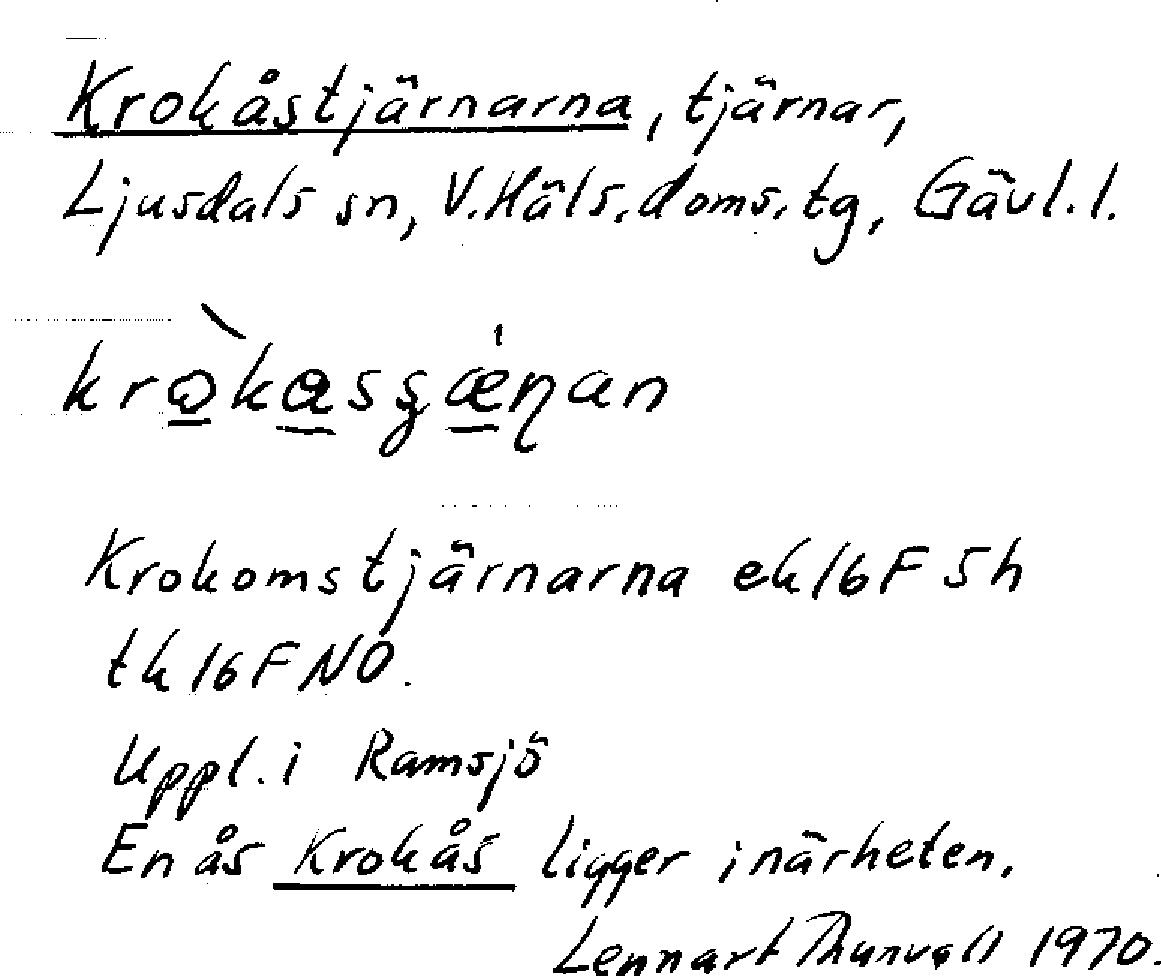 Krokåstjärnarna, tjärnar,
Ljusdals sn, V.Häls.doms.tg, Gävl.l.
Krokomstjärnarna ek 16F 5h
tk 16F NO.
Uppl. i Ramsjö
En ås Krokås ligger i närheten.
Lennart Thunvall 1970.